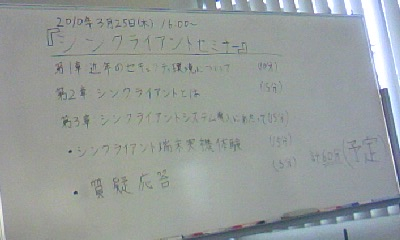 2010年3月25日(木) 16:00~
『シンクライアントセミナー』
第1章 近年のセキュリティ環境について (10分)
第2章 シンクライアントとは (15分)
第3章 シンクライアントシステム導入にあたって(15分)
・シンクライアント端末実機体験 (15分)
・質疑応答 (5分) 計60分(予定)